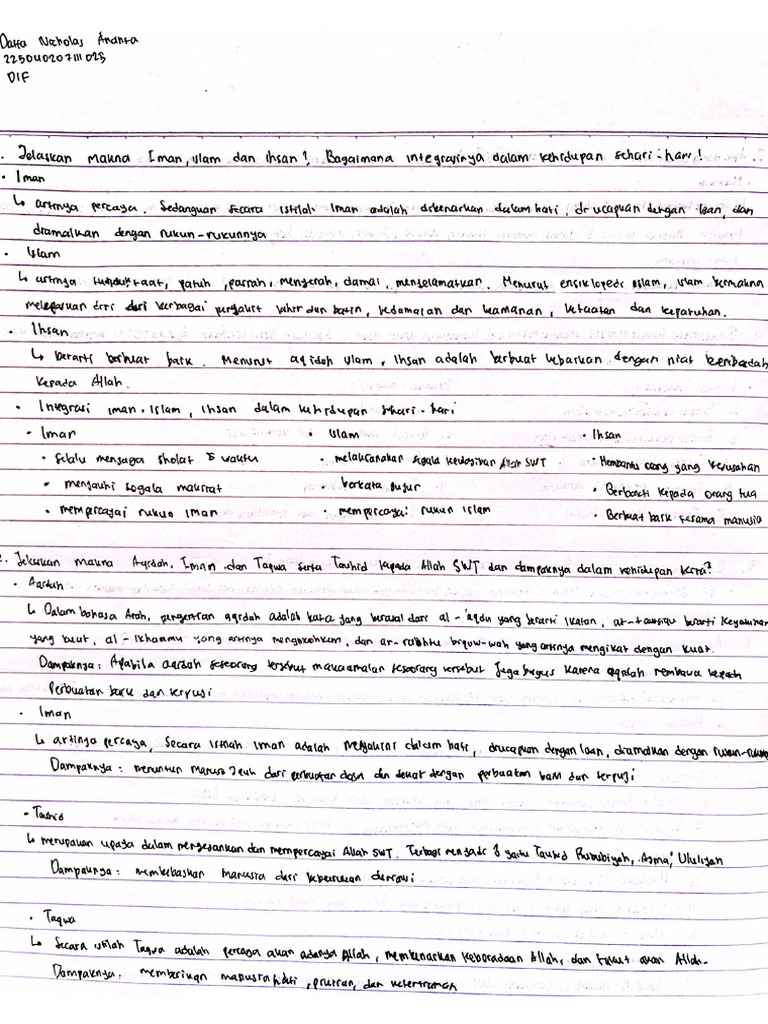 Datta Nicholas Ananta
225040207111025
DIF
. Jelaskan makna Iman, Islam dan Ihsan?, Bagaimana integrasinya dalam kehidupan sehari-hari!
• Iman
↳ artinya percaya. Sedangkan secara istilah Iman adalah dibenarkan dalam hati, di ucapkan dengan lisan, dan
diamalkan dengan rukun-rukunnya
• Islam
↳ artinya tunduk, taat, patuh, pasrah, menyerah, damai, menyelamatkan. Menurut ensiklopedi Islam, Islam bermakna
melepaskan diri dari berbagai penyakit lahir dan batin, kedamaian dan keamanan, ketaatan dan kepatuhan.
• Ihsan
↳ berarti berbuat baik. Menurut aqidah Islam, Ihsan adalah berbuat kebaikan dengan niat beribadah
kepada Allah.
• Integrasi iman, Islam, Ihsan dalam kehidupan sehari-hari
• Iman • Islam • Ihsan
• selalu menjaga sholat 5 waktu • melaksanakan segala kewajiban Allah SWT • Membantu orang yang kesusahan
• menjauhi segala maksiat • berkata jujur • Berbakti kepada orang tua
• mempercayai rukun iman • mempercayai rukun Islam • Berbuat baik sesama manusia
2. Jelaskan makna Aqidah, Iman dan Taqwa serta Tauhid kepada Allah SWT dan dampaknya dalam kehidupan kita?
• Aqidah
↳ Dalam bahasa Arab, pengertian aqidah adalah kata yang berasal dari al-'aqdu yang berarti ikatan, at-tautsiqu berarti keyakinan
yang kuat, al-ihkaamu yang artinya mengokohkan, dan ar-rabthu biquw-wah yang artinya mengikat dengan kuat.
Dampaknya: Apabila aqidah seseorang tersebut maka amalan seseorang tersebut juga bagus karena aqidah membawa kepada
Perbuatan baik dan terpuji
• Iman
↳ artinya percaya, Secara istilah iman adalah meyakini dalam hati, diucapkan dengan lisan, diamalkan dengan rukun-rukun
Dampaknya: menuntun manusia jauh dari perbuatan dosa dan dekat dengan perbuatan baik dan terpuji
• Tauhid
↳ merupakan upaya dalam mengesankan dan mempercayai Allah SWT. Terbagi menjadi 3 yaitu Tauhid Rububiyah, Asma, Uluhiyah
Dampaknya: membebaskan manusia dari keburukan duniawi
• Taqwa
↳ Secara istilah Taqwa adalah percaya akan adanya Allah, membenarkan keberadaan Allah, dan takut akan Allah.
Dampaknya: memberikan manusia hati, pikiran, dan ketentraman